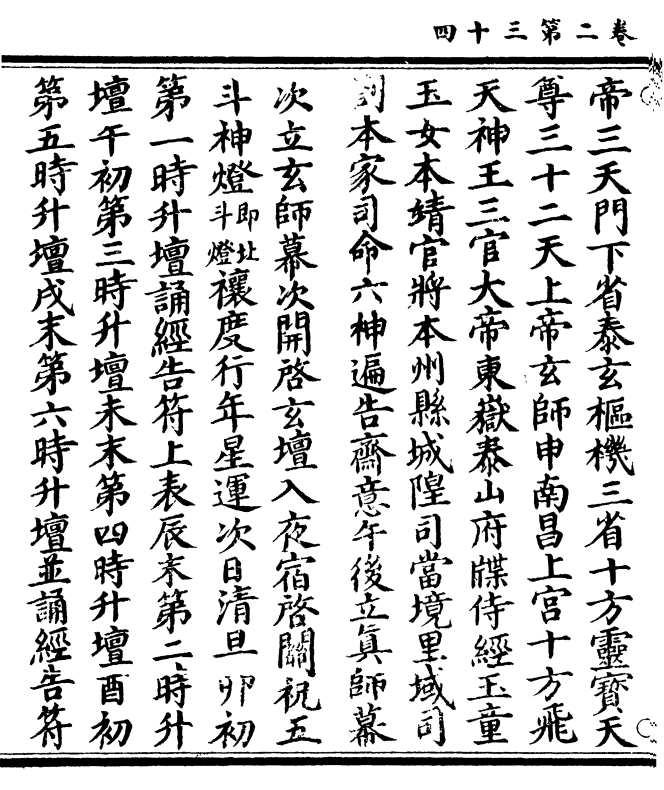 卷二第三十四
帝三天門下省泰玄樞機三省十方靈寶天
尊三十二天上帝玄師申南昌上宮十方飛
天神王三官大帝東嶽泰山府牒侍經玉童
玉女本靖官將本州縣城隍司當境里域司
劄本家司命六神遍告齋意午後立真師幕
次立玄師幕次開啓玄壇入夜宿啓關祝五
斗神燈即址斗燈禳度行年星運次日清旦卯初
第一時升壇誦經告符上表辰末第二時升
壇午初第三時升壇未末第四時升壇酉初
第五時升壇戌末第六時升壇並誦經告符